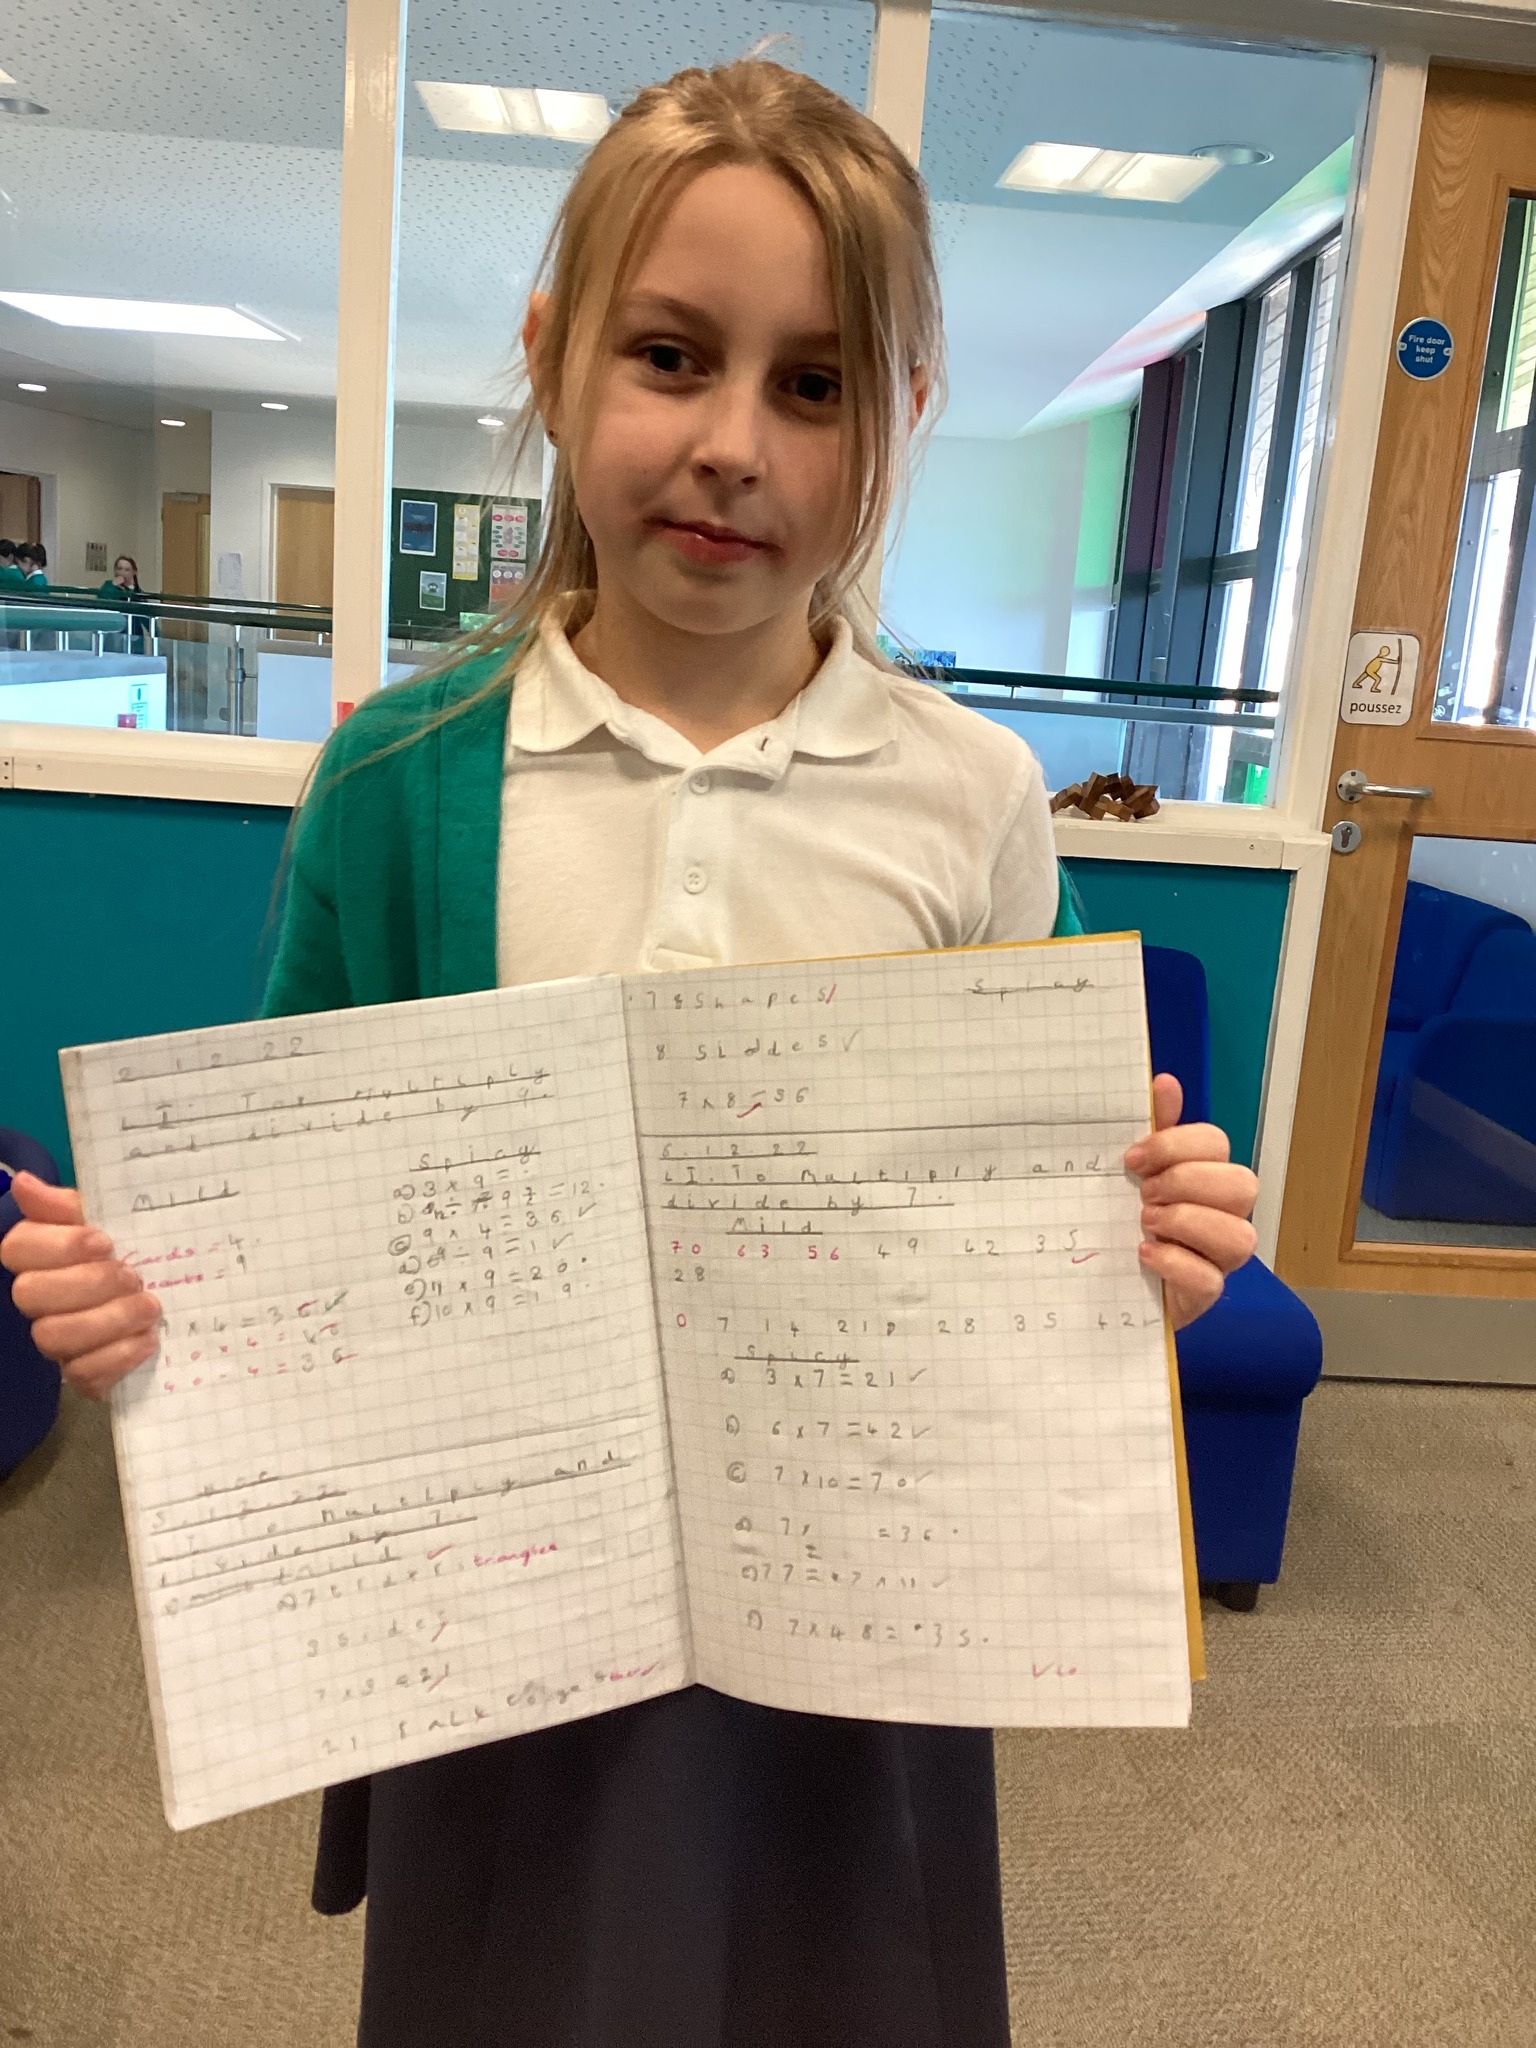 Fire door
keep
shut
poussez
2.12.22
and divide by 9.
Mild
Cards = 4.
Hearts = 9
9 x 4 = 36
10 x 4 = 40
40 - 4 = 36
Spicy
a) 3 x 9 =
c) 9 x 4 = 36
÷ 9 = 1
x 9 = 20
f) 10 x 9 = 19
5.12.22
L.I. To Multiply and
divide by 7.
Mild
triangles
3 sides
7 x 3 = 21
21
7 8 Shapes
Spicy
8 Siddes
7 x 8 = 56
6.12.22
L.I. To Multiply and
divide by 7.
Mild
70 63 56 49 42 35
28
0 7 14 21 28 35 42
Spicy
a) 3 x 7 = 21
b) 6 x 7 = 42
c) 7 x 10 = 70
= 36
77 = 7 x 11
f) 7 x 48 = 35